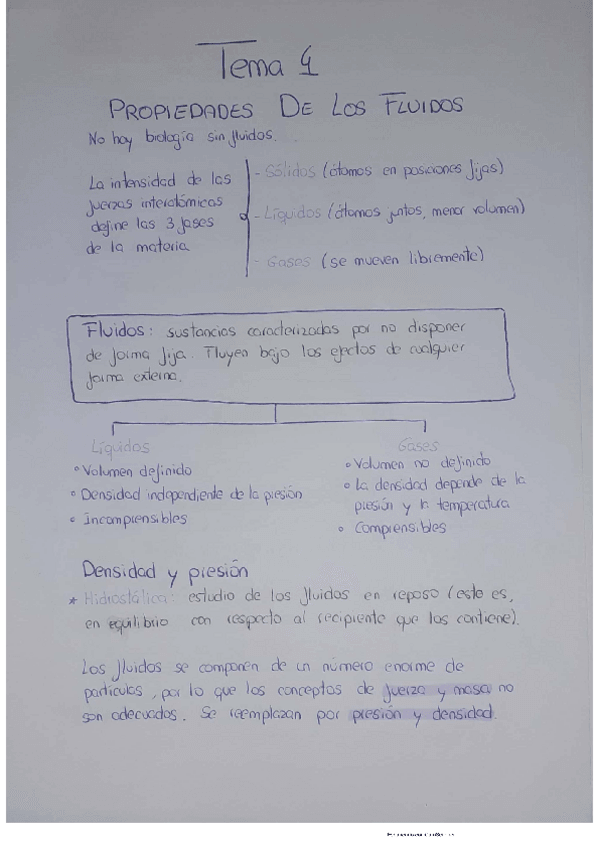 Tema 4
PROPIEDADES DE LOS FLUIDOS
No hay biología sin fluidos.
La intensidad de las
fuerzas interatómicas
define las 3 fases
de la materia
- Sólidos (átomos en posiciones fijas)
- Líquidos (átomos juntos, menor volumen)
- Gases (se mueven libremente)
Fluidos: sustancias caracterizadas por no disponer
de forma fija. Fluyen bajo los efectos de cualquier
forma externa.
Líquidos
• Volumen definido
• Densidad independiente de la presión
• Incomprensibles
Gases
• Volumen no definido
• La densidad depende de la
presión y la temperatura
• Comprensibles
Densidad y presión
* Hidrostática: estudio de los fluidos en reposo (esto es,
en equilibrio con respecto al recipiente que los contiene).
Los fluidos se componen de un número enorme de
partículas, por lo que los conceptos de fuerza y masa no
son adecuados. Se reemplazan por presión y densidad.